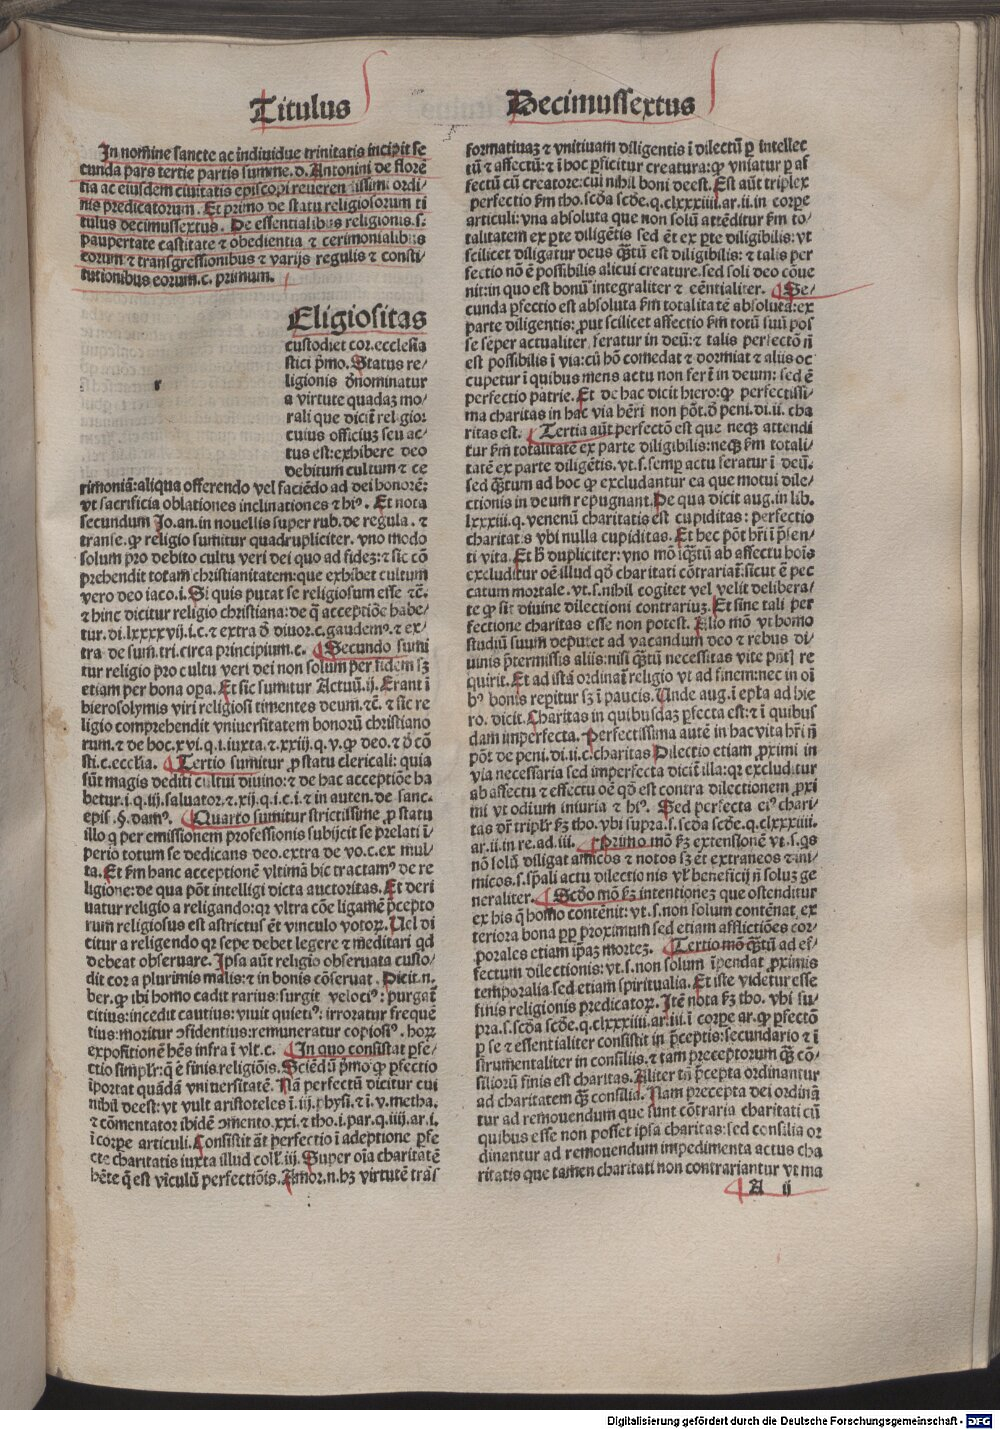 Titulus
Decimussextus
In nomine sancte ac indiuidue trinitatis incipit se
cunda pars tertie partis summe. d. Antonini de flore
tia ac eiusdem ciuitatis episcopi reuerendissimi ordi/
nis predicatorum. Et primo de statu religiosorum ti
tulus decimussextus. De essentialibus religionis. s.
paupertate castitate ⁊ obedientia ⁊ cerimonialibus
eorum ⁊ transgressionibus ⁊ varijs regulis ⁊ consti/
tutionibus eorum. c. primum.
r
Eligiositas
custodiet cor. ecclesia
stici p̄mo. Status re/
ligionis d̄nominatur
a virtute quadaꝫ mo/
rali que dicit̄ religio:
cuius officiuꝫ seu ac/
tus est: exhibere deo
debitum cultum ⁊ ce
rimoniā: aliqua offerendo vel faciēdo ad dei honorē:
vt sacrificia oblationes inclinationes ⁊ hiꝰ. Et nota
secundum Jo. an. in nouellis super rub. de regula. ⁊
transe. ꝙ religio sumitur quadrupliciter. vno modo
solum pro debito cultu veri dei quo ad fideꝫ: ⁊ sic cō
prehendit totam christianitatem: que exhibet cultum
vero deo iaco. i. Si quis putat se religiosum esse ⁊c̄.
⁊ hinc dicitur religio christiana: de q̄ acceptiōe habe/
tur. di. lxxxxvij. i. c. ⁊ extra d̄ diuor. c. gaudemꝰ. ⁊ ex/
tra de sum. tri. circa principium. c. Secundo sumi
tur religio pro cultu veri dei non solum per fidem sꝫ
etiam per bona opa. Et sic sumitur Actuū. ij. Erant ī
hierosolymis viri religiosi timentes deum. ⁊c̄. ⁊ sic re
ligio comprehendit vniuersitatem bonorū christiano
rum. ⁊ de hoc. xvi. q. i. iuxta. ⁊ xxiij. q. v. ꝙ deo. ⁊ d̄ cō
sti. c. ecclia. Tertio sumitur ꝓ statu clericali: quia
sūt magis dediti cultui diuino: ⁊ de hac acceptiōe ha
betur. i. q. iij. saluator. ⁊ xij. q. i. c. i. ⁊ in auten. de sanc.
epis. §. damꝰ. Quarto sumitur strictissime ꝓ statu
illoꝝ q per emissionem professionis subijcit se prelati ī/
perio totum se dedicans deo. extra de vo. c. ex mul/
ta. Et ẜm hanc acceptionē vltimā hic tractamꝰ de re
ligione: de qua pōt intelligi dicta auctoritas. Et deri
uatur religio a religando: qꝛ vltra cōe ligamē p̄cepto
rum religiosus est astrictus ēt vinculo votoꝝ. Uel di
citur a religendo qꝛ sepe debet legere ⁊ meditari qd
debeat obseruare. Ipsa aūt religio obseruata custo/
dit cor a plurimis malis: ⁊ in bonis cōseruat. Dicit. n.
ber. ꝙ ibi homo cadit rarius: surgit velociꝰ: purgat̄
titius: incedit cautius: viuit quietiꝰ: irroratur frequē
tius: moritur ꝯfidentius: remuneratur copiosiꝰ. hoꝝ
expositionē hēs infra ī vlt. c. In quo consistat ꝑfe/
ctio simplr: q̄ ē finis religiōis. Sciēdū p̄mo ꝙ ꝑfectio
īportat quādā vniuersitatē. Nā perfectū dicitur cui
nihil deest: vt vult aristoteles ī. iij. physi. ⁊ ī. v. metha.
⁊ cōmentator ibidē ꝯmento. xxi. ⁊ tho. i. par. q. iiij. ar. i.
ī corpe articuli. Consistit āt perfectio ī adeptione ꝑfe
cte charitatis iuxta illud coll. iij. Super oīa charitatē
hēte q̄ est vīculū perfectiōis. Amor. n. hꝫ virtutē trās
formatiuaꝫ ⁊ vnitiuam diligentis ī dilectū ꝑ intellec
tū ⁊ affectū: ⁊ ī hoc ꝑficitur creatura: ꝙ vniatur ꝑ af
fectū cū creatore: cui nihil boni deest. Est aūt triplex
perfectio ẜm tho. scđa scđe. q. clxxxiiij. ar. ii. in corpe
articuli: vna absoluta que non solū attēditur ẜm to/
talitatem ex ꝑte diligētis sed ēt ex ꝑte diligibilis: vt
scilicet diligatur deus qꝫtū est diligibilis: ⁊ talis per
fectio nō ē possibilis alicui creature. sed soli deo cōue
nit: in quo est bonū integraliter ⁊ eēntialiter. Se/
cunda ꝑfectio est absoluta ẜm totalitatē absoluta: ex
parte diligentis: ꝓut scilicet affectio ẜm totū suū pos
se sēper actualiter feratur in deū: ⁊ talis perfectō nō
est possibilis ī via: cū hō comedat ⁊ dormiat ⁊ aliis oc
cupetur ī quibus mens actu non fert̄ in deum: sed ē
perfectio patrie. Et de hac dicit hiero: ꝙ perfectissi/
ma charitas in hac via hēri non pōt. d̄ peni. di. ii. cha
ritas est. Tertia aūt perfectō est que neqꝫ attendi
tur ẜm totalitatē ex parte diligibilis: neqꝫ ẜm totali/
tatē ex parte diligētis. vt. s. semꝑ actu feratur ī deū.
sed qꝫtum ad hoc ꝙ excludantur ea que motui dile/
ctionis in deum repugnant. De qua dicit aug. in lib.
lxxxiij. q. venenū charitatis est cupiditas: perfectio
charitatis vbi nulla cupiditas. Et hec pōt hr̄i ī p̄sen/
ti vita. Et h̄ dupliciter: vno mō īqꝫtū ab affectu hoīs
excluditur oē illud qđ charitati cōtrariat̄: sicut ē pec
catum mortale. vt. s. nihil cogitet vel velit delibera/
te ꝙ sit diuine dilectioni contrariuꝫ. Et sine tali per
fectione charitas esse non potest. Alio mō vt homo
studiū suum deputet ad vacandum deo ⁊ rebus di/
uinis p̄termissis aliis: nisi qꝫtū necessitas vite pn̄tꝫ re
quirit. Et ad istā ordinat̄ religio vt ad finem: nec in oī
bꝰ bonis reperitur sꝫ ī paucis. Unde aug. ī epta ad hie
ro. dicit. Charitas in quibusdaꝫ ꝑfecta est: ⁊ ī quibus
dam imperfecta. Perfectissima autē in hac vita hr̄i n̄
pōt. de peni. di. ii. c. charitas Dilectio etiam ꝓximi in
via necessaria sed imperfecta dicit̄ illa: qꝛ excluditur
ab affectu ⁊ effectu oē qđ est contra dilectionem ꝓxi
mi vt odium iniuria ⁊ hiꝰ. Sed perfecta eiꝰ chari/
tas dr̄ triplr̄ ẜꝫ tho. vbi supra. s. scđa scđe. q. clxxxiiii.
ar. ii. in re. ad. iii. Primo mō ẜꝫ extensionē vt. s. qs
nō solū diligat amicos ⁊ notos sꝫ ēt extraneos ⁊ ini/
micos. s. sp̄ali actu dilectionis vl̄ beneficij n̄ soluꝫ ge
neraliter. Scđo mō ẜꝫ intentioneꝫ que ostenditur
ex his q̄ homo contēnit: vt. s. non solum contēnat ex
teriora bona pꝑ proximum sed etiam afflictiōes cor/
porales etiam ip̄aꝫ morteꝫ. Tertio mō qꝫtū ad ef/
fectum dilectionis: vt. s. non solum īpendat ꝓximis
temporalia sed etiam spiritualia. Et iste videtur esse
finis religionis predicatoꝝ. Itē nota ẜꝫ tho. vbi su/
pra. s. scđa scđe. q. clxxxiiii. ar. iii. ī corpe ar. ꝙ ꝑfectō
ꝑ se ⁊ essentialiter consistit in p̄ceptis: secundario ⁊ ī
strumentaliter in consiliis. ⁊ tam preceptorum qꝫ cō/
siliorū finis est charitas. Aliter tn̄ p̄cepta ordinantur
ad charitatem qꝫ consilia. Nam precepta dei ordinā
tur ad remouendum que sunt cōtraria charitati cū
quibus esse non posset ipsa charitas: sed consilia or
dinantur ad remouendum impedimenta actus cha
ritatis que tamen charitati non contrariantur vt ma
A ij
Digitalisierung gefördert durch die Deutsche Forschungsgemeinschaft - DFG